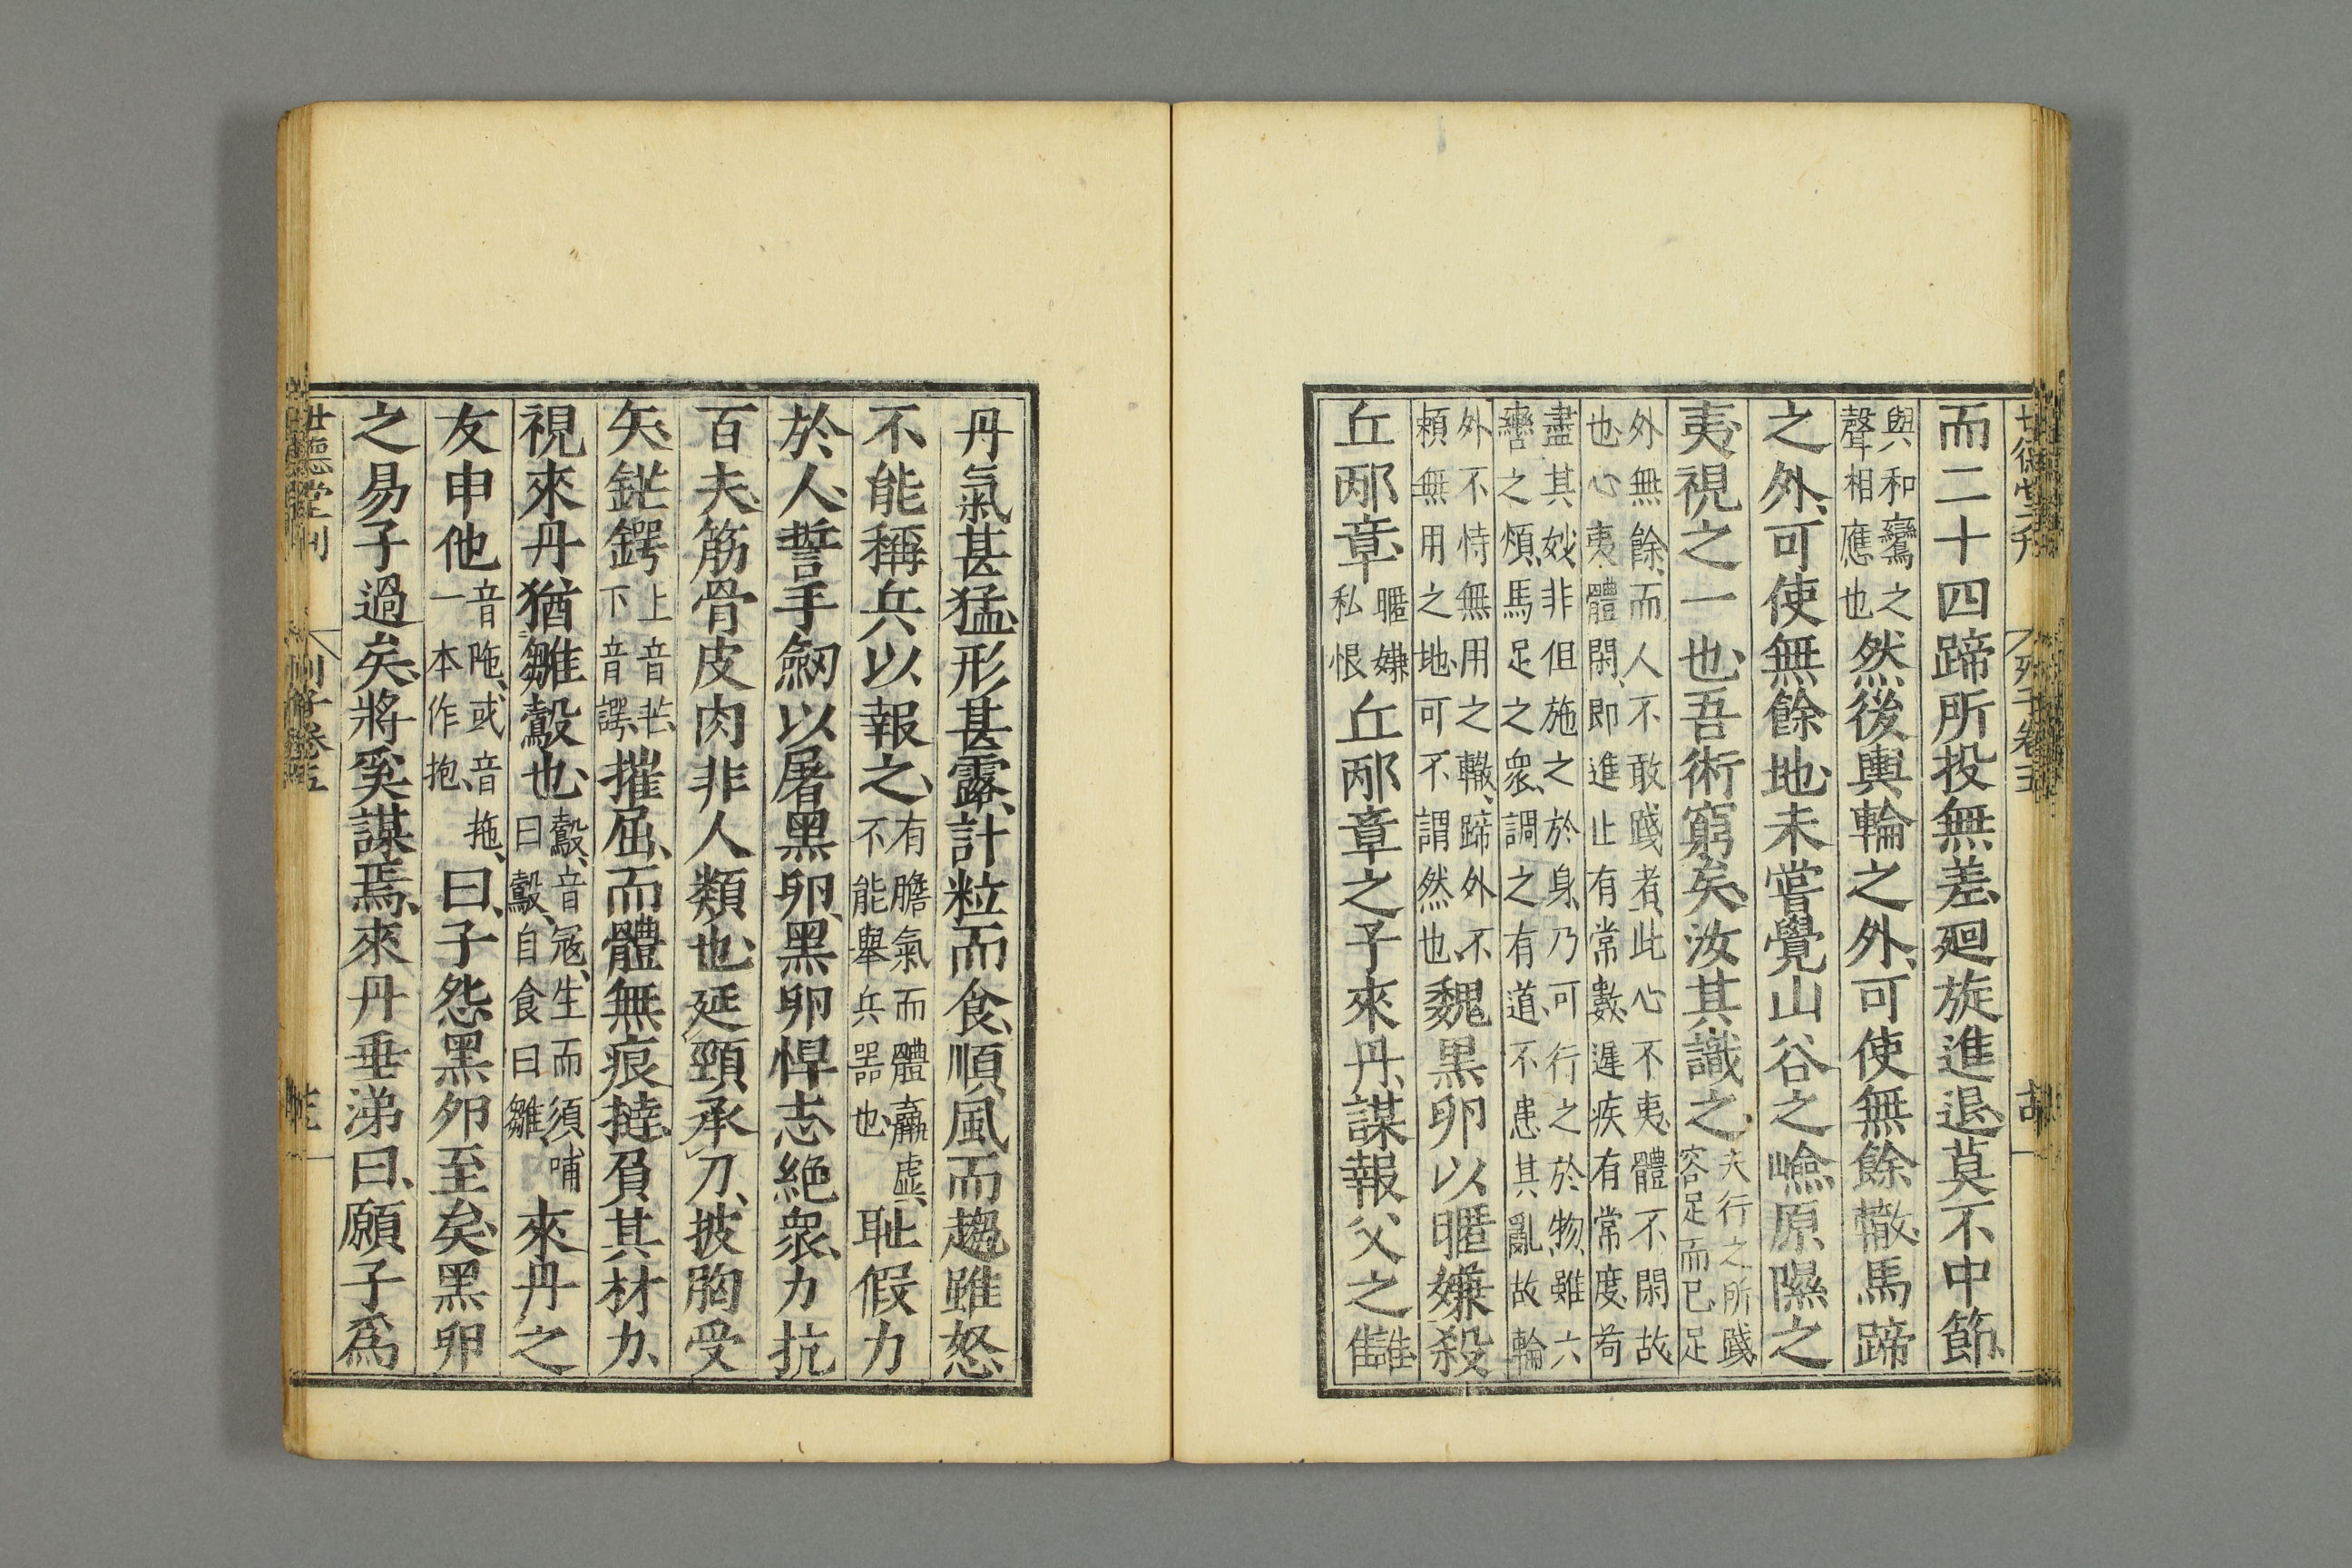 世德堂刊 列子卷五
而二十四蹄所投無差、廻旋進退、莫不中節、
與和鸞之
聲相應也
然後輿輪之外、可使無餘轍、馬蹄
之外、可使無餘地、未嘗覺山谷之嶮、原隰之
夷、視之一也、吾術窮矣、汝其識之、
夫行之所踐
容足而已足
外無餘、而人不敢踐者、此心不夷、體不閑故
也、心夷體閑、即進止有常數、遲疾有常度、苟
盡其妙、非但施之於身、乃可行之於物、雖六
轡之煩、馬足之衆、調之有道、不患其亂故輪
外不恃無用之轍、蹄外不
賴無用之地、可不謂然也
魏黒卵以暱嫌殺
丘邴章、
暱嫌
私恨
丘邴章之子來丹、謀報父之讎、
丹氣甚猛、形甚露、計粒而食、順風而趨、雖怒、
不能稱兵以報之、
有膽氣而體羸虛、
不能舉兵器也、
耻假力
於人、誓手劒以屠黑卵、黑卵悍志絶衆、力抗
百夫、筋骨皮肉非人類也、延頸承刀、披胸受
矢、鋩鍔
上音芒、
下音諤、
摧屈、而體無痕撻、負其材力、
視來丹猶雛鷇也、
鷇、音冦、生而須哺
曰鷇、自食曰雛、
來丹之
友申他
音陁、或音拖、
一本作抱、
曰、子怨黑卵至矣、黑卵
之易子過矣、將奚謀焉、來丹垂涕曰、願子爲
世德堂刊 列子卷五